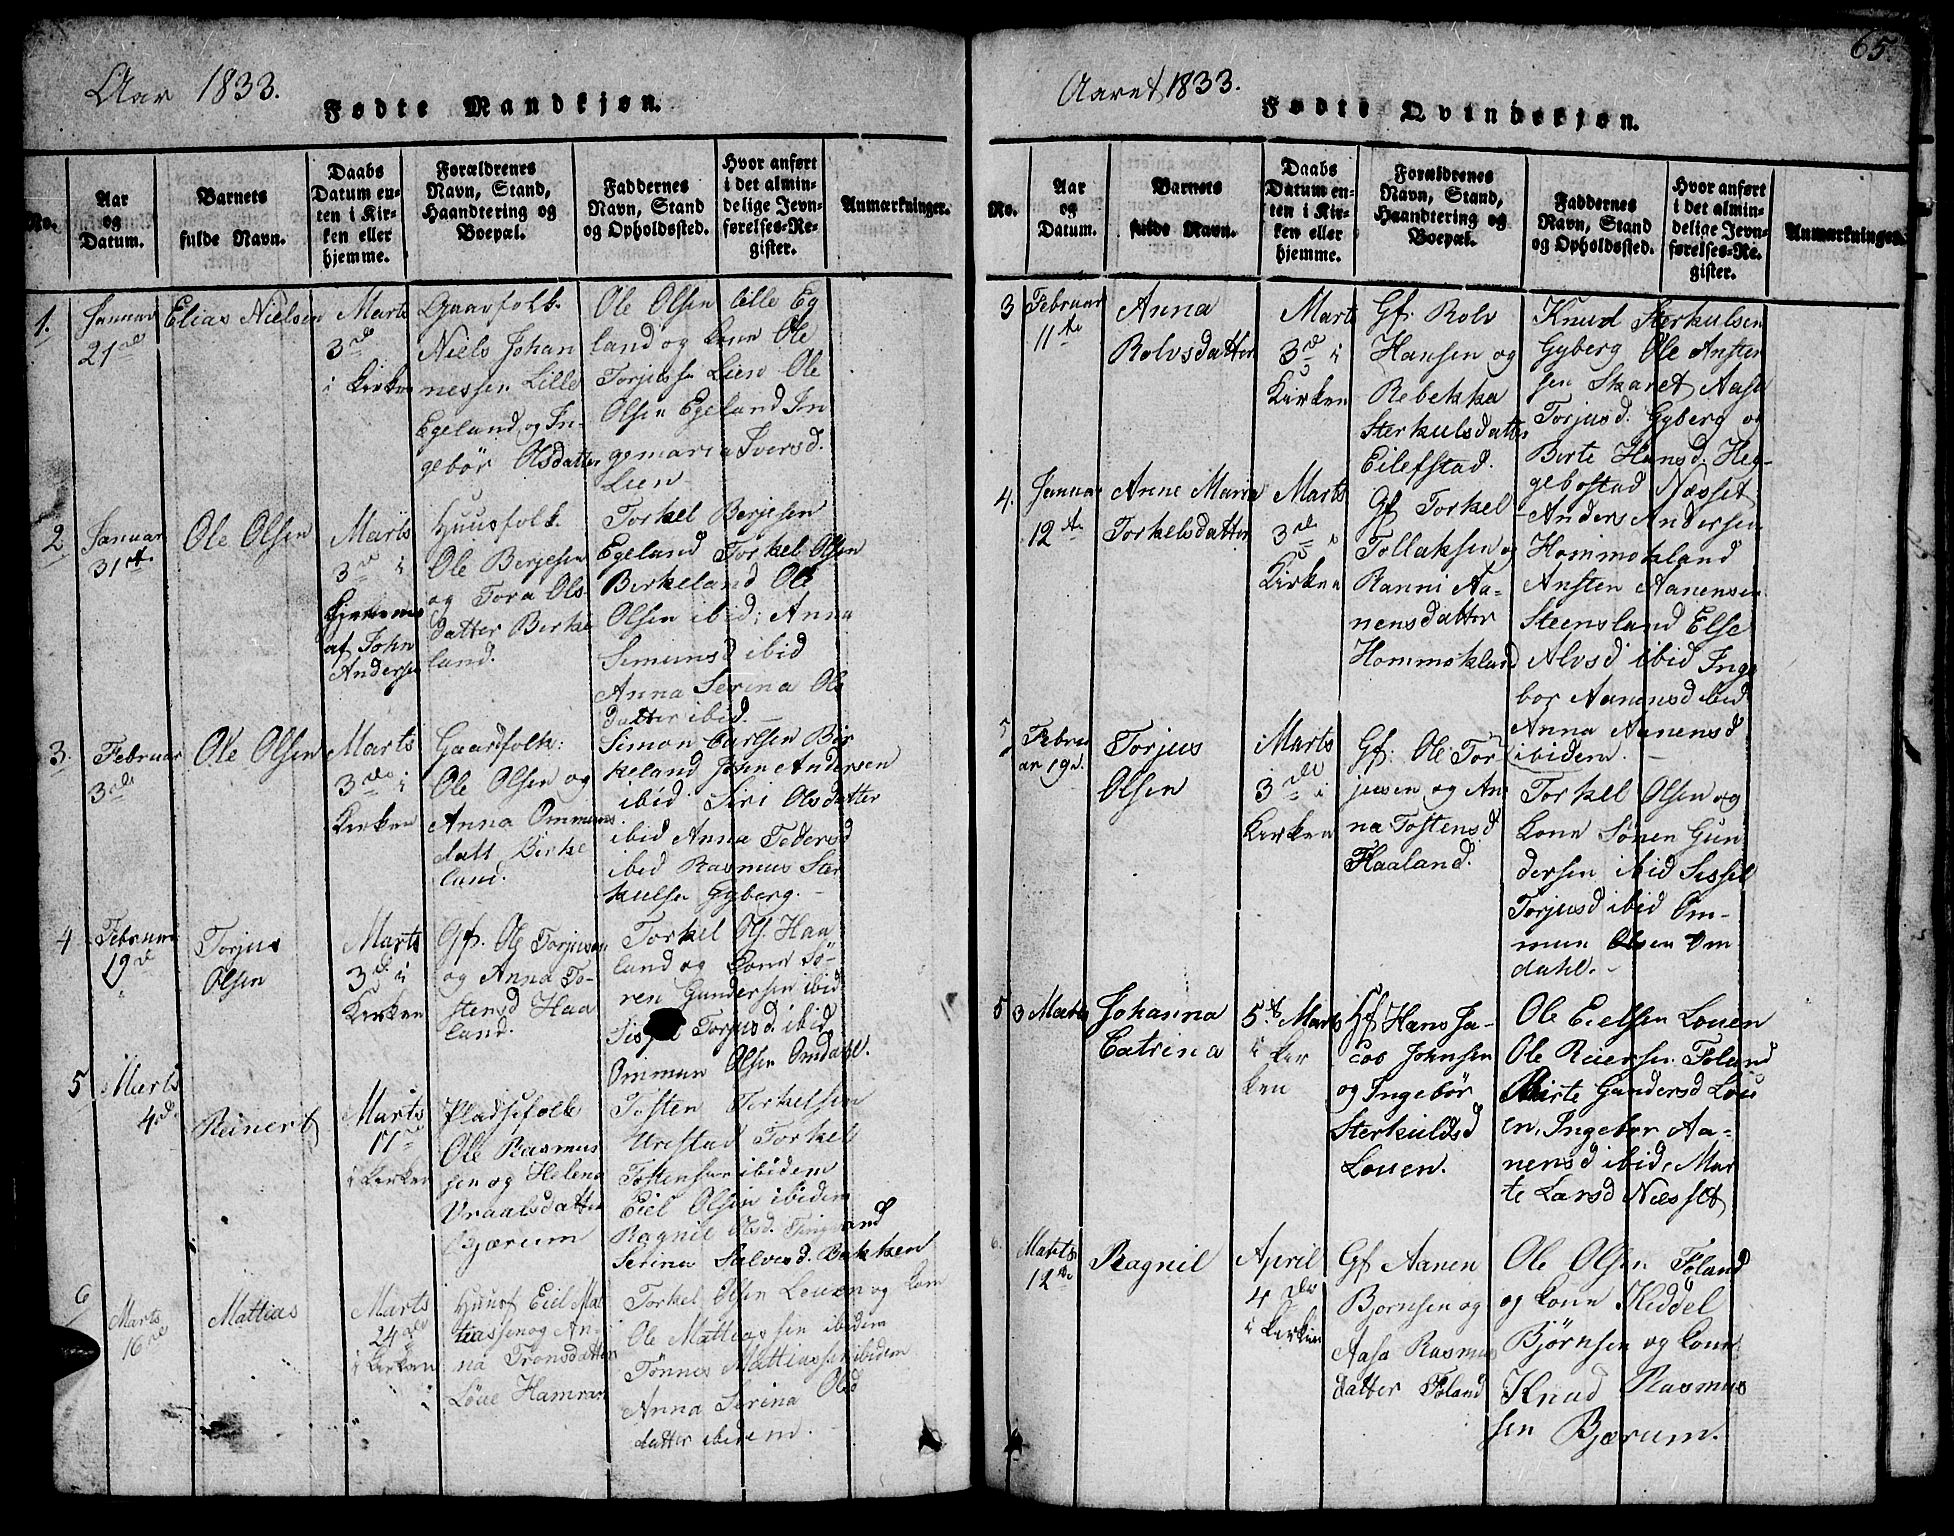 Aar 1833.
Fødte Mandkjøn.
No.
Aar
og
Datum.
Barnets
fulde Navn.
Daabs
Datum en-
ten i Kir-
ken eller
hjemme.
Forældrenes
Navn, Stand,
Haandtering og
Boepæl.
Faddernes
Navn, Stand
og Opholdssted.
Hvor anført
i det almin-
delige Jevn-
førelses-Re-
gister.
Anmærkninger.
1.
Januar
21de
Elias Nielsen
Marts
3de
i Kirken
Gaarfolk.
Niels Johan
nessen Lille
Egeland og In-
gebør Olsdatter
Ole Olsen lille Eg
land og Kone Ole
Torjussn Lien Ole
Olsen Egeland In
gemaria Iversd.
Lien
2
Januar
31te
Ole Olsen
Marts
3de i
Hjemme
af John
Andersen
Huusfolk
Ole Berjesen
og Tora Ols
datter Birke
land.
Torkel Berjesen
Egeland Torkel Olsen
Birkeland Ole
Olsen ibid; Anna
Simunsd ibid
Anna Serina Ols
datter ibid.
3.
Februar
3de
Ole Olsen
Marts
3de i
Kirken
Gaardfolk:
Ole Olsen og
Anna Ommuns
datt Birke
land.
Simon Carlsen Bir
keland John Andersen
ibid Siri Olsdatter
ibid Anna Pedersd
ibid Rasmus Ster
kulsn Gyberg.
4
Februar
19de
Torjus
Olsen
Marts
3de i
Kirken
Gf. Ole Torjusen
og Anna To-
stensd Haa
land.
Torkel Ols. Haa
land og Kone Sö-
ren Gundersen ibid
Torjusd. ibid
Ommun Olsen Omdahl.
5
Marts
4de
Reinert
Marts
17de
i Kirken
Pladsefolk
Ole Rasmus
sen og Helena
Vraalsdatter
Bjærum
Tosten Terkelsen
Urestad Torkel
Tostensen ibidem
Eiel Olsen ibidem
Ragnil Olsd.
Serina Salvesd. Bakken
6
Marts
16de
Mattias
Marts
24de
i Kirken
Huusf Eiel Mat
tiassen og An-
na Tronsdatter
Löue Hamran
Torkel Olsen Louen og Kone
Ole Mattiassen ibidem
Tönnes Mattiassen ibidem
Anna Serina Ols
datter ibidem.
65.
Aaret 1833.
Fødte Qvindekjøn.
No.
Aar
og
Datum.
Barnets
fulde Navn.
Daabs
Datum en-
ten i Kir-
ken eller
hjemme.
Forældrenes
Navn, Stand,
Haandtering og
Boepæl.
Faddernes
Navn, Stand
og Opholdssted.
Hvor anført
i det almin-
delige Jevn-
førelses-Re-
gister.
Anmærkninger.
3
Februar
11te
Anna
Rolvsdatter
Marts
3de i
Kirken
Gf. Rolv
Hansen og
Rebekka
Sterkulsdatter
Eilefstad.
Knud Sterkulsen
Gyberg Ole Ansten
sen Skaret Aase
Torjusd. Gyberg og
Berte Hansd. Heg-
gebostad Næsset
4.
Januar
12te
Anne Maria
Torkelsdatter
Marts
3de i
Kirken
Gf Torkel
Tollaksen og
Ranni Aa-
nensdatter
Hommokland
Anders Andersen
Hommokland
Ansten Aanensen
Steensland Else
Alvsd ibid Inge
bor Aanensd ibid
Anna Aanensd
ibidem.
5
Febru
ar 19de
Torjus
Olsen
Marts
3de i
Kirken
Gf: Ole Tor
jussen og An
na Tostensd
Haaland.
Torkel Olsen og
Kone Sören Gun
dersen ibid Sissel
Torjusd ibid Om-
mun Olsen Om
dahl.
5
3 Marts
Johanna
Catrina
5te Marts
i Kir
ken
Hf Hans Ja-
cob Johnsen
og Ingebør
Sterkuldsd
Louen.
Ole Eielsen Louen
Ole Reiersen Foland
Birte Gundersd Lou
en, Ingebor Aa-
nensd ibid, Mar
te Larsd Næsset
6.
Marts
12te
Ragnil
April
4de
i Kirken
Gf Aanen
Bjornsen og
Aasa Rasmus
datter Foland
Ole Olsen Föland
og Kone Kiddel
Bjørnsen og Kone
Knud Rasmus
sen Bjærum.